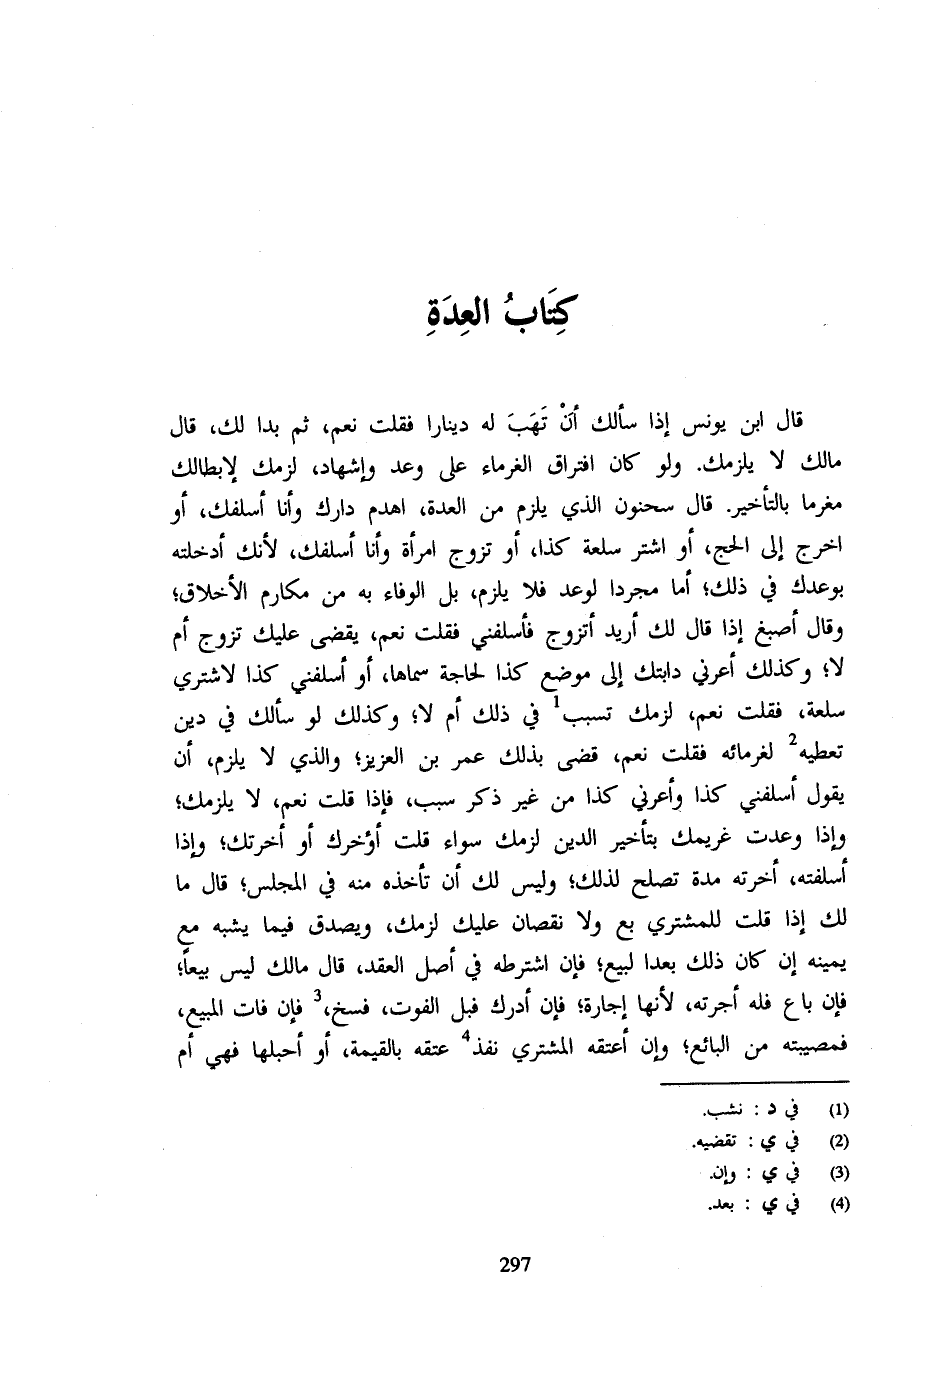 كِتَابُ العِدَةِ
قال ابن يونس إذا سألك أنْ تَهَبَ له دينارا فقلت نعم، ثم بدا لك، قال
مالك لا يلزمك. ولو كان افتراق الغرماء على وعد وإشهاد، لزمك لإبطالك
مغرما بالتأخير. قال سحنون الذي يلزم من العدة، اهدم دارك وأنا أسلفك، أو
اخرج إلى الحج، أو اشتر سلعة كذا، أو تزوج امرأة وأنا أسلفك، لأنك أدخلته
بوعدك في ذلك؛ أما مجردا لوعد فلا يلزم، بل الوفاء به من مكارم الأخلاق؛
وقال أصبغ إذا قال لك أريد أتزوج فأسلفني فقلت نعم، يقضى عليك تزوج أم
لا؛ وكذلك أعرني دابتك إلى موضع كذا لحاجة سماها، أو أسلفني كذا لاشتري
سلعة، فقلت نعم، لزمك تسبب1 في ذلك أم لا؛ وكذلك لو سألك في دين
تعطيه2 لغرمائه فقلت نعم، قضى بذلك عمر بن العزيز؛ والذي لا يلزم، أن
يقول أسلفني كذا وأعرني كذا من غير ذكر سبب، فإذا قلت نعم، لا يلزمك؛
وإذا وعدت غريمك بتأخير الدين لزمك سواء قلت أؤخرك أو أخرتك؛ وإذا
أسلفته، أخرته مدة تصلح لذلك؛ وليس لك أن تأخذه منه في المجلس؛ قال ما
لك إذا قلت للمشتري بع ولا نقصان عليك لزمك، ويصدق فيما يشبه مع
يمينه إن كان ذلك بعدا لبيع؛ فإن اشترطه في أصل العقد، قال مالك ليس بيعاً؛
فإن باع فله أجرته، لأنها إجارة؛ فإن أدرك قبل الفوت، فسخ،3 فإن فات المبيع،
فمصيبته من البائع؛ وإن أعتقه المشتري نفذ4 عتقه بالقيمة، أو أحبلها فهي أم
(1) في د : نشب.
(2) في ي : تقضيه.
(3) في ي : وإن.
(4) في ي : بعد.
297